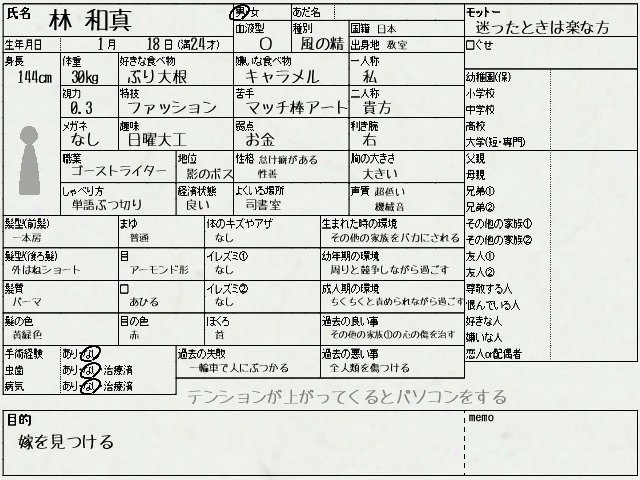 氏名 林 和真 男・女 あだ名 モットー
迷ったときは楽な方
血液型 O 種別 風の精 国籍 日本
生年月日 1月 18日(満24才) 出身地 教室 口ぐせ
身長 144cm 体重 30kg 好きな食べ物 ぶり大根 嫌いな食べ物 キャラメル 一人称 私
視力 0.3 特技 ファッション 苦手 マッチ棒アート 二人称 貴方
メガネ なし 趣味 日曜大工 弱点 お金 利き腕 右
職業 ゴーストライター 地位 影のボス 性格 怠け癖がある 性善 胸の大きさ 大きい
しゃべり方 単語ぶつ切り 経済状態 良い よくいる場所 司書室 声質 超低い 機械音
幼稚園(保)
小学校
中学校
高校
大学(短・専門)
父親
母親
兄弟①
兄弟②
その他の家族①
その他の家族②
友人①
友人②
尊敬する人
恨んでいる人
好きな人
嫌いな人
恋人or配偶者
髪型(前髪) 一本房 まゆ 普通 体のキズやアザ なし 生まれた時の環境 その他の家族をバカにされる
髪型(後ろ髪) 外はねショート 目 アーモンド形 イレズミ① なし 幼年期の環境 周りと競争しながら過ごす
髪質 パーマ 口 あひる イレズミ② なし 成人期の環境 ちくちくと責められながら過ごす
髪の色 黄緑色 目の色 赤 ほくろ 首 過去の良い事 その他の家族①の心の傷を治す
手術経験 あり・なし 過去の失敗 一輪車で人にぶつかる 過去の悪い事 全人類を傷つける
虫歯 あり・なし・治療済
病気 あり・なし・治療済
テンションが上がってくるとパソコンをする
目的 memo
嫁を見つける